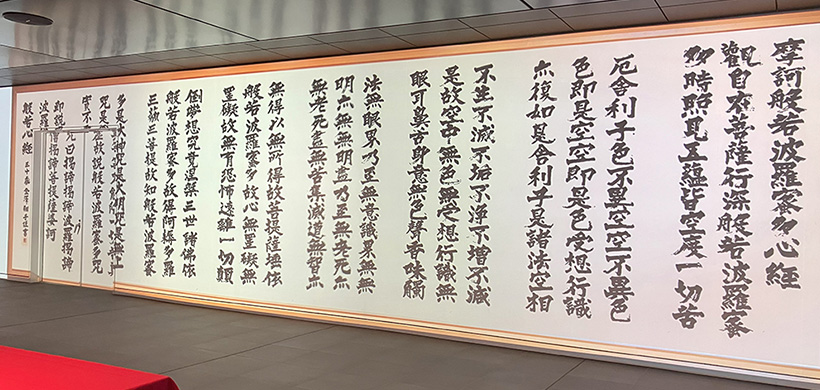 摩訶般若波羅蜜多心経
觀自在菩薩行深般若波羅蜜
多時照見五蘊皆空度一切苦
厄舎利子色不異空空不異色
色即是空空即是色受想行識
亦復如是舎利子是諸法空相
不生不滅不垢不淨不增不減
是故空中無色無受想行識無
眼耳鼻舌身意無色聲香味觸
法無眼界乃至無意識界無無
明亦無無明盡乃至無老死亦
無老死盡無苦集滅道無智亦
無得以無所得故菩提薩埵依
般若波羅蜜多故心無罣礙無
罣礙故無有恐怖遠離一切顛
倒夢想究竟涅槃三世諸佛依
般若波羅蜜多故得阿耨多羅
三藐三菩提故知般若波羅蜜
多是大神咒是大明咒是無上
咒是
實不故説般若波羅蜜多咒
即説咒曰揭諦揭諦波羅揭諦
波羅僧揭諦菩提薩婆訶
般若心経 金澤翔子書